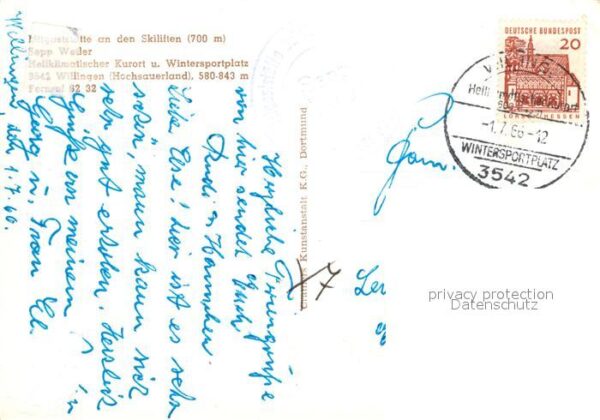 Hilgaststätte an den Skiliften (700 m)
Sepp Weiler
Heilklimatischer Kurort u. Wintersportplatz
3542 Willingen (Hochsauerland), 580-843 m
Fernruf 62 32
Willingen, den 1.7.66.
Herzliche Feriengrüße
von hier sendet Euch
Rudi u. Hannchen.
Liebe Else! Hier ist es sehr
schön, man kann sich
sehr gut erholen. Herzliche
Grüße von meinem
Georg u. Frau El.
Cramers Kunstanstalt K.G., Dortmund
Fam.
Ler
17
DEUTSCHE BUNDESPOST
20
LORSCH/HESSEN
WILLINGEN
Heilklimatischer Kurort
-1.7.66-12
WINTERSPORTPLATZ
3542
privacy protection
Datenschutz